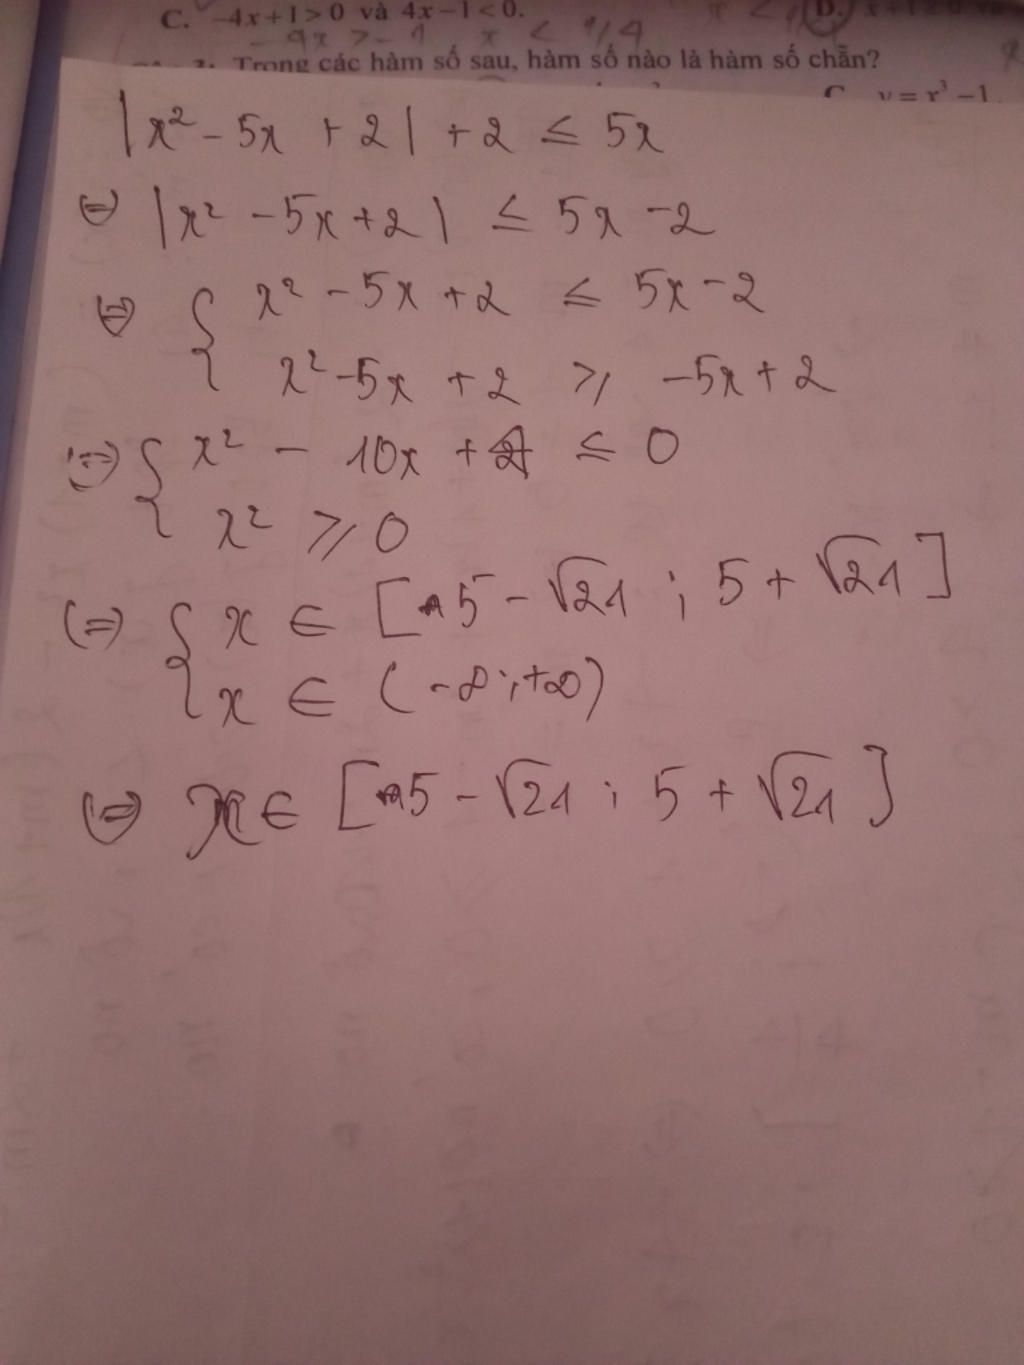 C. -4x+1>0 và 4x-1<0.
-4x > -1 x < 1/4
Trong các hàm số sau, hàm số nào là hàm số chẵn?
C. y = x³ - 1
|x² - 5x + 2| + 2 ≤ 5x
⇔ |x² - 5x + 2| ≤ 5x - 2
⇔ { x² - 5x + 2 ≤ 5x - 2
x² - 5x + 2 ≥ -5x + 2
⇔ { x² - 10x + 4 ≤ 0
x² ≥ 0
⇔ { x ∈ [5 - √21 ; 5 + √21]
x ∈ (-∞; +∞)
⇔ x ∈ [5 - √21 ; 5 + √21]